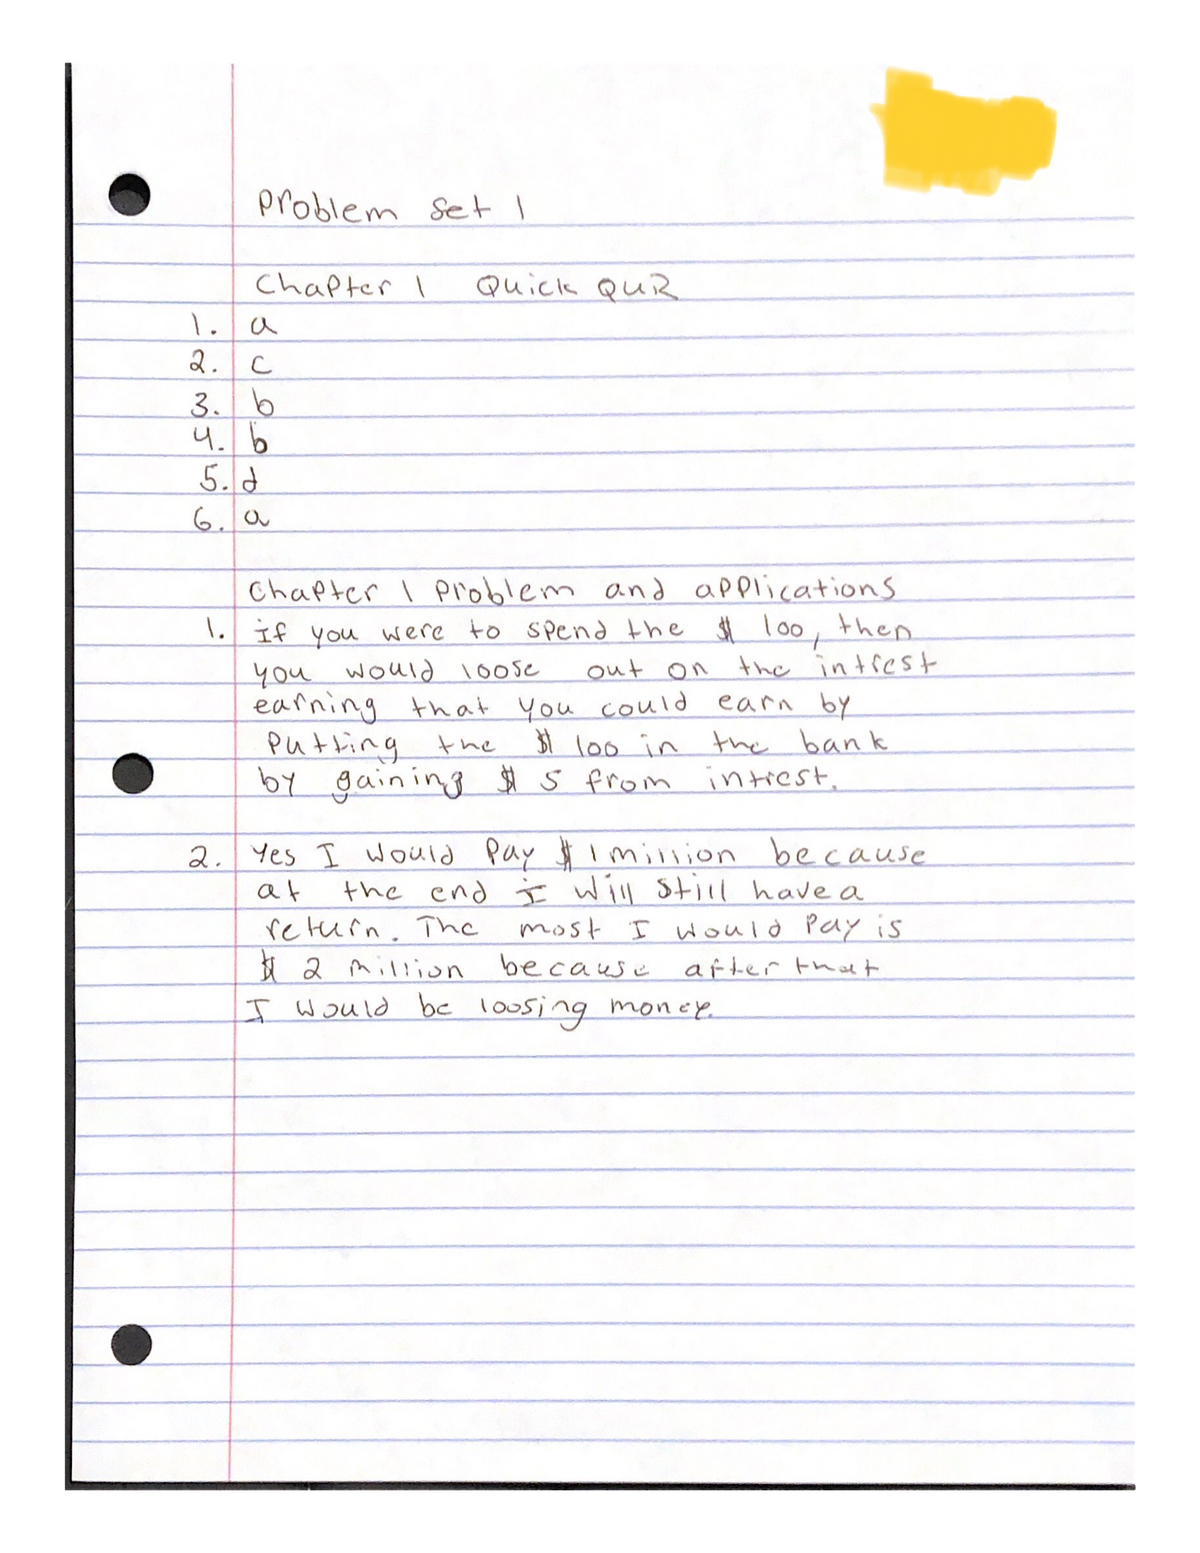 Problem Set 1
Chapter 1 Quick Quiz
1. a
2. c
3. b
4. b
5. d
6. a
Chapter 1 Problem and applications
1. if you were to spend the $ 100, then
you would loose out on the intrest
earning that you could earn by
Putting the $ 100 in the bank
by gaining $ 5 from intrest.
2. Yes I would Pay $ 1 million because
at the end I will still have a
return. The most I would Pay is
$ 2 million because after that
I would be loosing money.